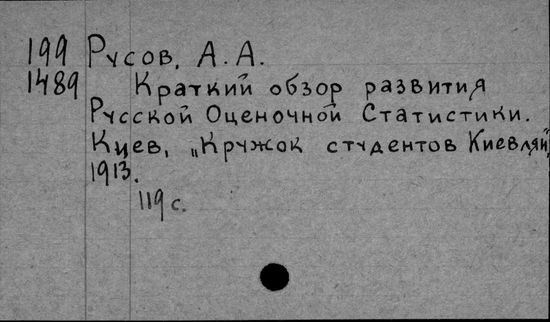 199 Русов, А. А.
1489 Краткий обзор развития
Русской Оценочной Статистики.
Киев, „Кружок студентов Киевлян"
1913.
119 с.